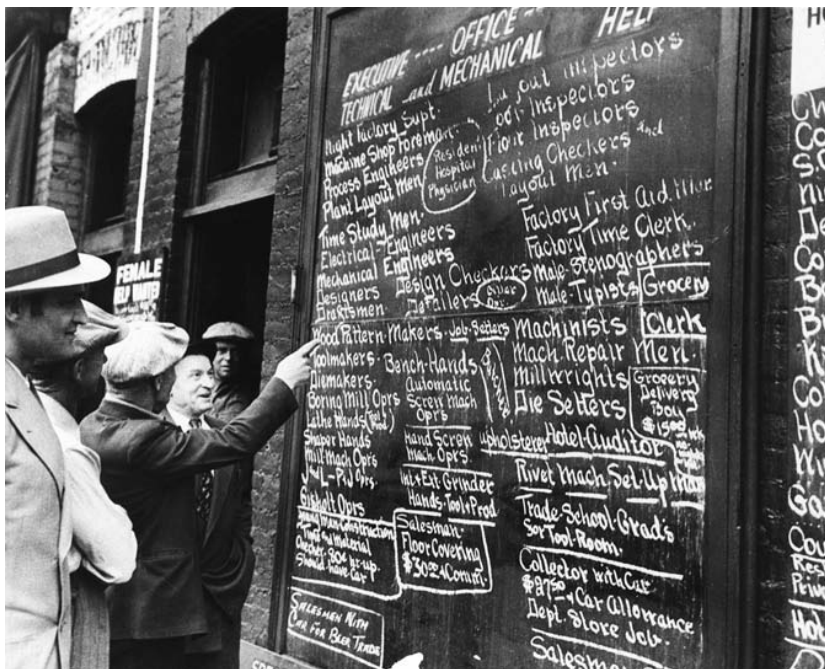 EXECUTIVE ---- OFFICE -- HELP
TECHNICAL and MECHANICAL
Night Factory Supt.
Machine Shop Foreman
Process Engineers
Plant Layout Men
Resident
Hospital
Physician
out Inspectors
Inspectors
Floor Inspectors
Casting Checkers and
Layout Men.
Time Study Men.
Electrical-Engineers
Mechanical Engineers
Designers
Draftsmen
Design Checkers
Detailers
Factory First Aid
Factory Time Clerk.
Male-Stenographers
Male-Typists
Grocery
Clerk
Wood Pattern-Makers
Toolmakers
Diemakers
Boring Mill Oprs
Lathe Hands
Shaper Hands
Mill Mach Oprs
J and L-
Gisholt Oprs
Job Setters
Bench-Hands
Automatic
Screw Mach
Opr's
Hand Screw
Mach Oprs
Int & Ext Grinder
Hands-Tool & Prod
Machinists
Mach. Repair Men.
Millwrights
Die Setters
Grocery
Delivery
Boy
upholsterer
Hotel-Auditor
Rivet Mach Set-Up Man
Trade-School-Grads
for Tool-Room.
Young Man-Construction
material
Checker
Should have Car
Salesman-
Floor Covering
$30.00 & Comm.
Collector with Car
$27.50 & Car Allowance
Dept. Store Job.
SALESMEN WITH
CAR FOR BEER TRADE
Salesman
FEMALE
HELP WANTED